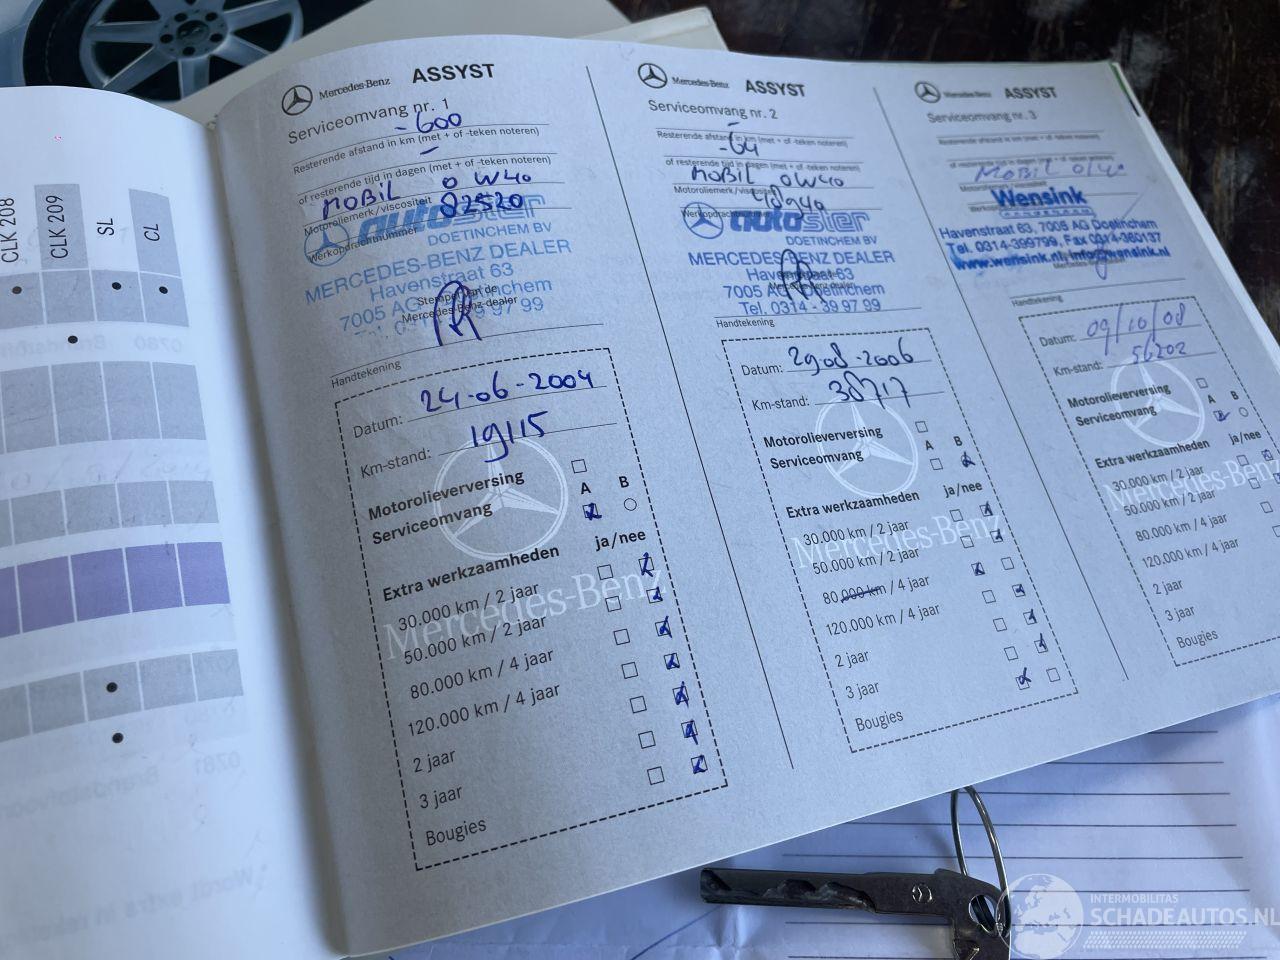 CLK 208
CLK 209
SL
CL
Mercedes-Benz ASSYST
Serviceomvang nr. 1
-600
Resterende afstand in km (met + of -teken noteren)
of resterende tijd in dagen (met + of -teken noteren)
MOBIL 0W40
Motoroliemerk/viscositeit
82520
Werkopdrachtnummer
autoster
DOETINCHEM BV
MERCEDES-BENZ DEALER
Havenstraat 63
7005 AG Doetinchem
Stempel van de
Mercedes-Benz-dealer
Handtekening
Datum: 24-06-2004
Km-stand: 19115
Motorolieverversing
A B
Serviceomvang
Extra werkzaamheden ja/nee
30.000 km / 2 jaar
50.000 km / 2 jaar
80.000 km / 4 jaar
120.000 km / 4 jaar
2 jaar
3 jaar
Bougies
Mercedes-Benz
Mercedes-Benz ASSYST
Serviceomvang nr. 2
Resterende afstand in km (met + of -teken noteren)
-64
of resterende tijd in dagen (met + of -teken noteren)
MOBIL 0W40
Motoroliemerk/viscositeit
Werkopdrachtnummer
autoster
DOETINCHEM BV
MERCEDES-BENZ DEALER
Havenstraat 63
7005 AG Doetinchem
Tel. 0314 - 39 97 99
Handtekening
Datum: 29-08-2006
Km-stand: 38717
Motorolieverversing
A B
Serviceomvang
Extra werkzaamheden ja/nee
30.000 km / 2 jaar
50.000 km / 2 jaar
80.000 km / 4 jaar
120.000 km / 4 jaar
2 jaar
3 jaar
Bougies
Mercedes-Benz
Mercedes-Benz ASSYST
Serviceomvang nr. 3
Resterende afstand in km (met + of -teken noteren)
of resterende tijd in dagen (met + of -teken noteren)
Wensink
Havenstraat 63, 7005 AG Doetinchem
Tel. 0314-399799, Fax 0314-360137
www.wensink.nl, info@wensink.nl
Handtekening
Datum: 09/10/08
Km-stand: 56202
Motorolieverversing
A B
Serviceomvang
Extra werkzaamheden ja/nee
30.000 km / 2 jaar
50.000 km / 2 jaar
80.000 km / 4 jaar
120.000 km / 4 jaar
2 jaar
3 jaar
Bougies
INTERMOBILITAS
SCHADEAUTOS.NL